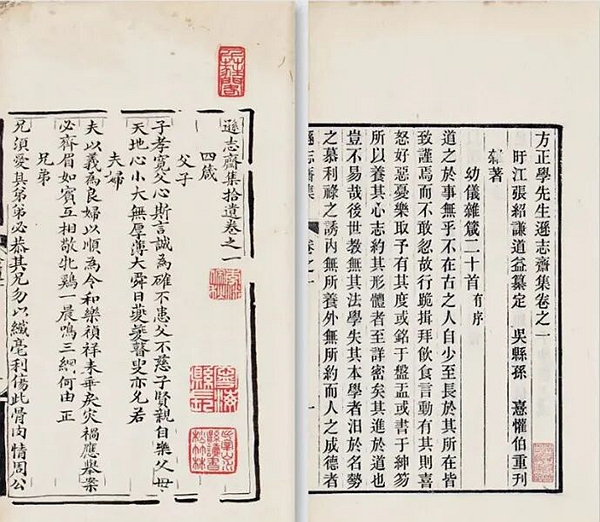 方正學先生遜志齋集卷之一
盱江張紹謙道益纂定 吳縣孫 憙懽伯重刊
雜著
幼儀雜箴二十首 有序
道之於事無乎不在古之人自少至長於其所在皆
致謹焉而不敢忽故行跪揖拜飲食言動有其則喜
怒好惡憂樂取予有其度或銘于盤盂或書于紳笏
所以養其心志約其形體者至詳密矣其進於道也
豈不易哉後世教無其法學失其本學者汨於名勢
之慕利祿之誘內無所養外無所約而人之成德者
遜志齋集 卷之一 一
遜志齋集拾遺卷之一
四箴
父子
子孝寬父心斯言誠為確不患父不慈子賢親自樂父母
天地心小大無厚薄大舜日夔夔瞽叟亦允若
夫婦
夫以義為良婦以順為令和樂禎祥來乖戾災禍應舉案
必齊眉如賓互相敬牝鷄一晨鳴三綱何由正
兄弟
兄須愛其弟弟必恭其兄勿以纖毫利傷此骨肉情周公
寧海縣長